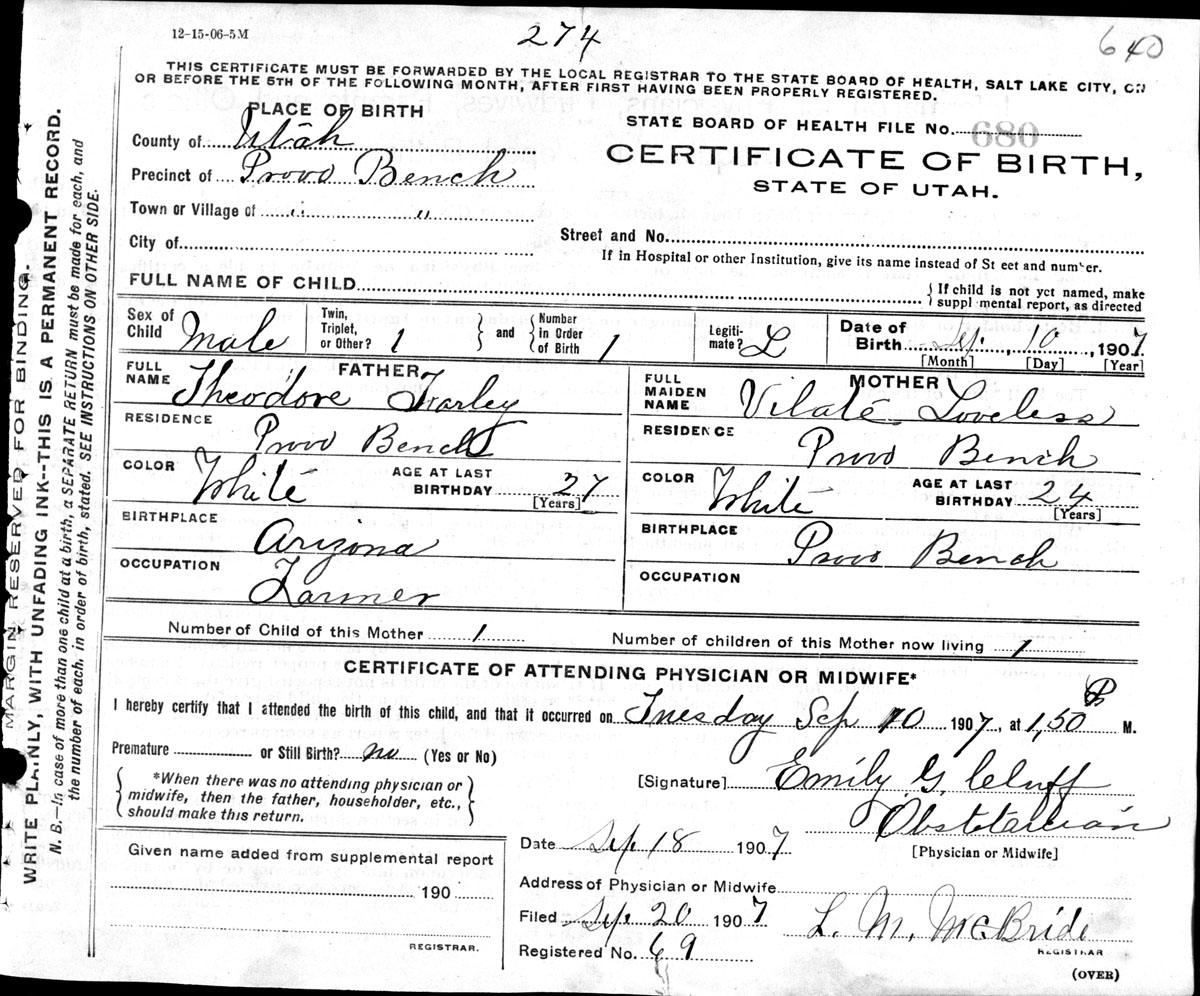 12-15-06-5M
274
640
THIS CERTIFICATE MUST BE FORWARDED BY THE LOCAL REGISTRAR TO THE STATE BOARD OF HEALTH, SALT LAKE CITY, ON
OR BEFORE THE 5TH OF THE FOLLOWING MONTH, AFTER FIRST HAVING BEEN PROPERLY REGISTERED.
PLACE OF BIRTH
County of Utah
Precinct of Provo Bench
Town or Village of " "
City of
STATE BOARD OF HEALTH FILE No. 680
CERTIFICATE OF BIRTH,
STATE OF UTAH.
Street and No.
If in Hospital or other Institution, give its name instead of St eet and number.
FULL NAME OF CHILD
If child is not yet named, make
suppl mental report, as directed
Sex of Child Male
Twin, Triplet, or Other? 1 and Number in Order of Birth 1
Legitimate? L
Date of Birth Sep. 10, 1907
[Month] [Day] [Year]
FATHER
FULL NAME Theodore Farley
RESIDENCE Provo Bench
COLOR White AGE AT LAST BIRTHDAY 27
[Years]
BIRTHPLACE Arizona
OCCUPATION Farmer
MOTHER
FULL MAIDEN NAME Vilate Loveless
RESIDENCE Provo Bench
COLOR White AGE AT LAST BIRTHDAY 24
[Years]
BIRTHPLACE Provo Bench
OCCUPATION
Number of Child of this Mother 1
Number of children of this Mother now living 1
CERTIFICATE OF ATTENDING PHYSICIAN OR MIDWIFE*
I hereby certify that I attended the birth of this child, and that it occurred on Tuesday Sep 10 1907, at 1,50 P M.
Premature or Still Birth? no (Yes or No)
*When there was no attending physician or
midwife, then the father, householder, etc.,
should make this return.
[Signature] Emily G. Cluff
Obstetarcian
[Physician or Midwife]
Date Sep 18 1907
Given name added from supplemental report
190
REGISTRAR.
Address of Physician or Midwife
Filed Sep 20 1907
L. M. McBride
REGISTRAR
Registered No. 69
(OVER)
MARGIN RESERVED FOR BINDING.
WRITE PLAINLY, WITH UNFADING INK--THIS IS A PERMANENT RECORD.
N. B.—In case of more than one child at a birth, a SEPARATE RETURN must be made for each, and
the number of each, in order of birth, stated. SEE INSTRUCTIONS ON OTHER SIDE.